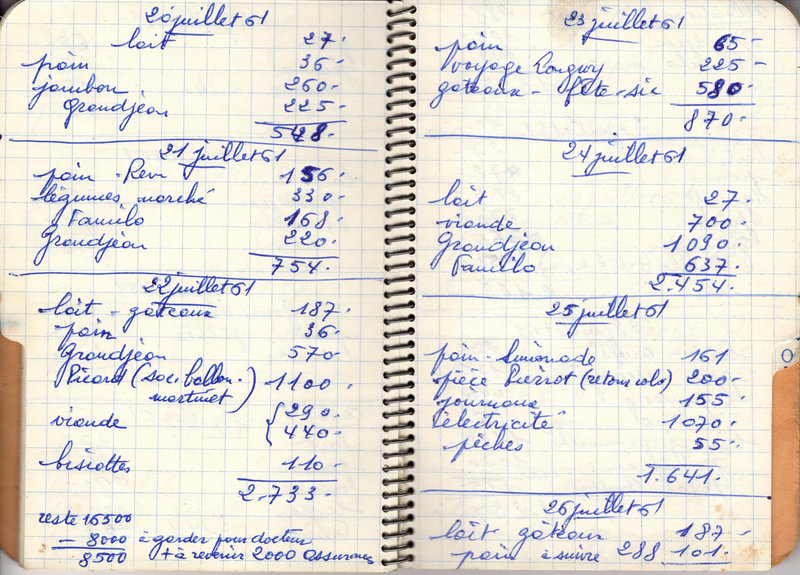 20 juillet 61
lait 27.
pain 36 -
jambon 260 -
Grandjean 225 -
548.
21 juillet 61
pain - Revu 156 -
légumes marché 330 -
Familo 168 -
Grandjean 220 -
754.
22 juillet 61
lait - gâteaux 187.
pain 36 -
Grandjean 570
Picard (sac. ballon - martinet) 1100.
viande { 290 -
440 -
biscottes 110 -
2.733 -
reste 16500
- 8000 à garder pour docteur
8500 + à revenir 2000 assurances
23 juillet 61
pain 65 -
voyage Longwy 225 -
gâteaux - fête - sic 580
870.
24 juillet 61
lait 27.
viande 700.
Grandjean 1090.
Familo 637.
2.454.
25 juillet 61
pain - limonade 161
pièce Pierrot (retour colo) 200 -
journaux 155
électricité 1070 -
pêches 55.
1.641.
26 juillet 61
lait gâteau 187 -
pain à suivre 288 101 -